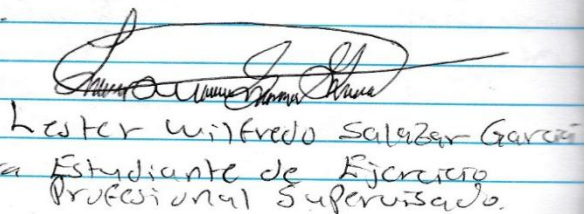 Lester Wilfredo Salazar García
a Estudiante de Ejercicio
Profesional Supervisado.